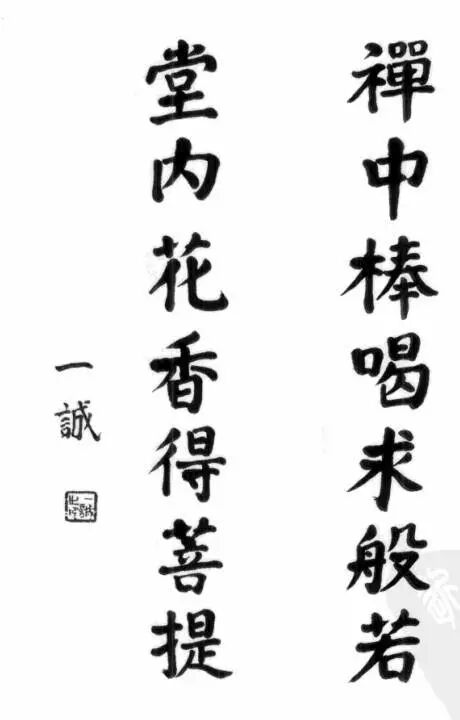 禪中棒喝求般若
堂内花香得菩提
一誠